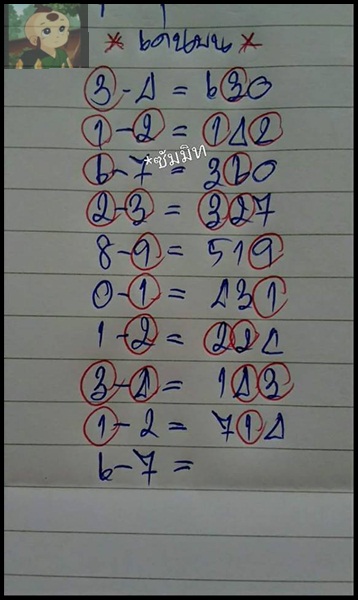 * เดินบน *
3-4 = 630
1-2 = 142
6-7 = 360
*ซัมมิท
2-3 = 327
8-9 = 519
0-1 = 431
1-2 = 224
3-4 = 143
1-2 = 714
6-7 =